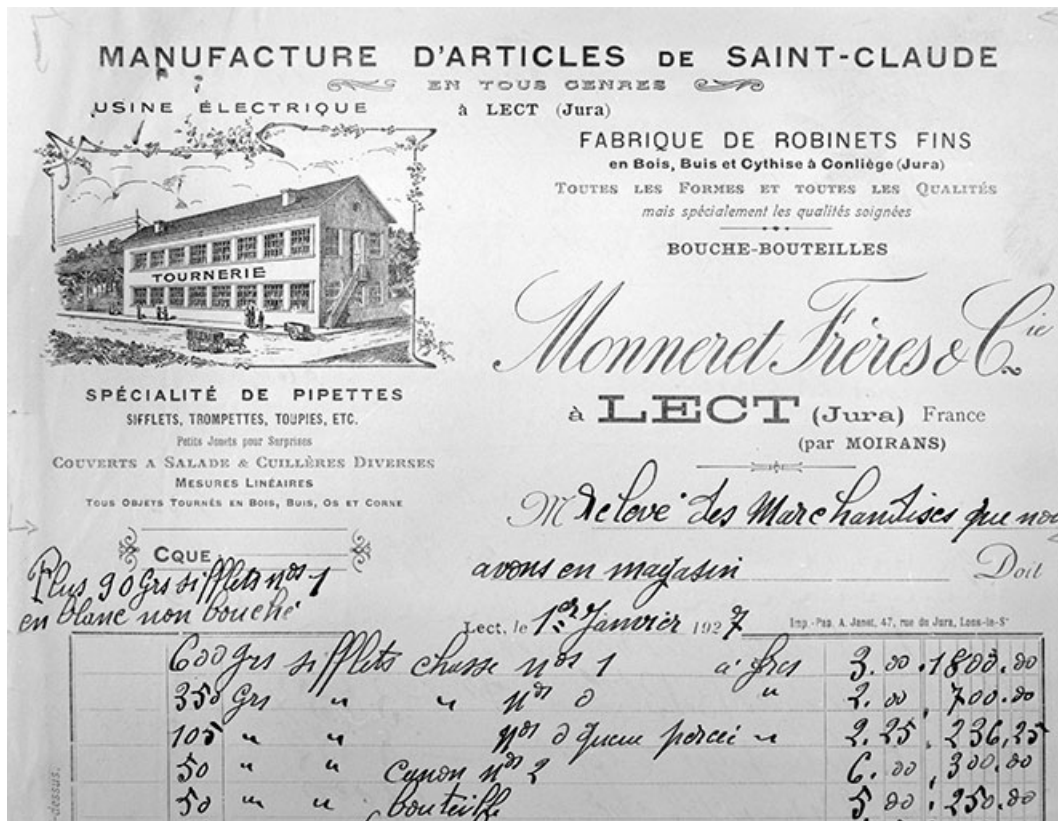 MANUFACTURE D'ARTICLES DE SAINT-CLAUDE
EN TOUS GENRES
à LECT (Jura)
USINE ÉLECTRIQUE
TOURNERIE
SPÉCIALITÉ DE PIPETTES
SIFFLETS, TROMPETTES, TOUPIES, ETC.
Petits Jouets pour Surprises
COUVERTS A SALADE & CUILLÈRES DIVERSES
MESURES LINÉAIRES
TOUS OBJETS TOURNÉS EN BOIS, BUIS, OS ET CORNE
FABRIQUE DE ROBINETS FINS
en Bois, Buis et Cythise à Conliège (Jura)
TOUTES LES FORMES ET TOUTES LES QUALITÉS
mais spécialement les qualités soignées
BOUCHE-BOUTEILLES
Monneret Frères & Cie
à LECT (Jura) France
(par MOIRANS)
M Relevé des Marchandises que nou
avons en magasin Doit
CQUE
Plus 90 Grs sifflets nos 1
en blanc non bouché
Lect, le 1er Janvier 1927
Imp.-Pap. A. Janet, 47, rue du Jura, Lons-le-Sr
600 grs sifflets chasse nos 1 à frcs 3.00 1800.00
350 Grs " " nos 0 " 2.00 700.00
105 " " nos 0 queue percée " 2.25 236,25
50 " " canon nos 2 6.00 300.00
50 " " bouteille 5 00 250.00
dessus.